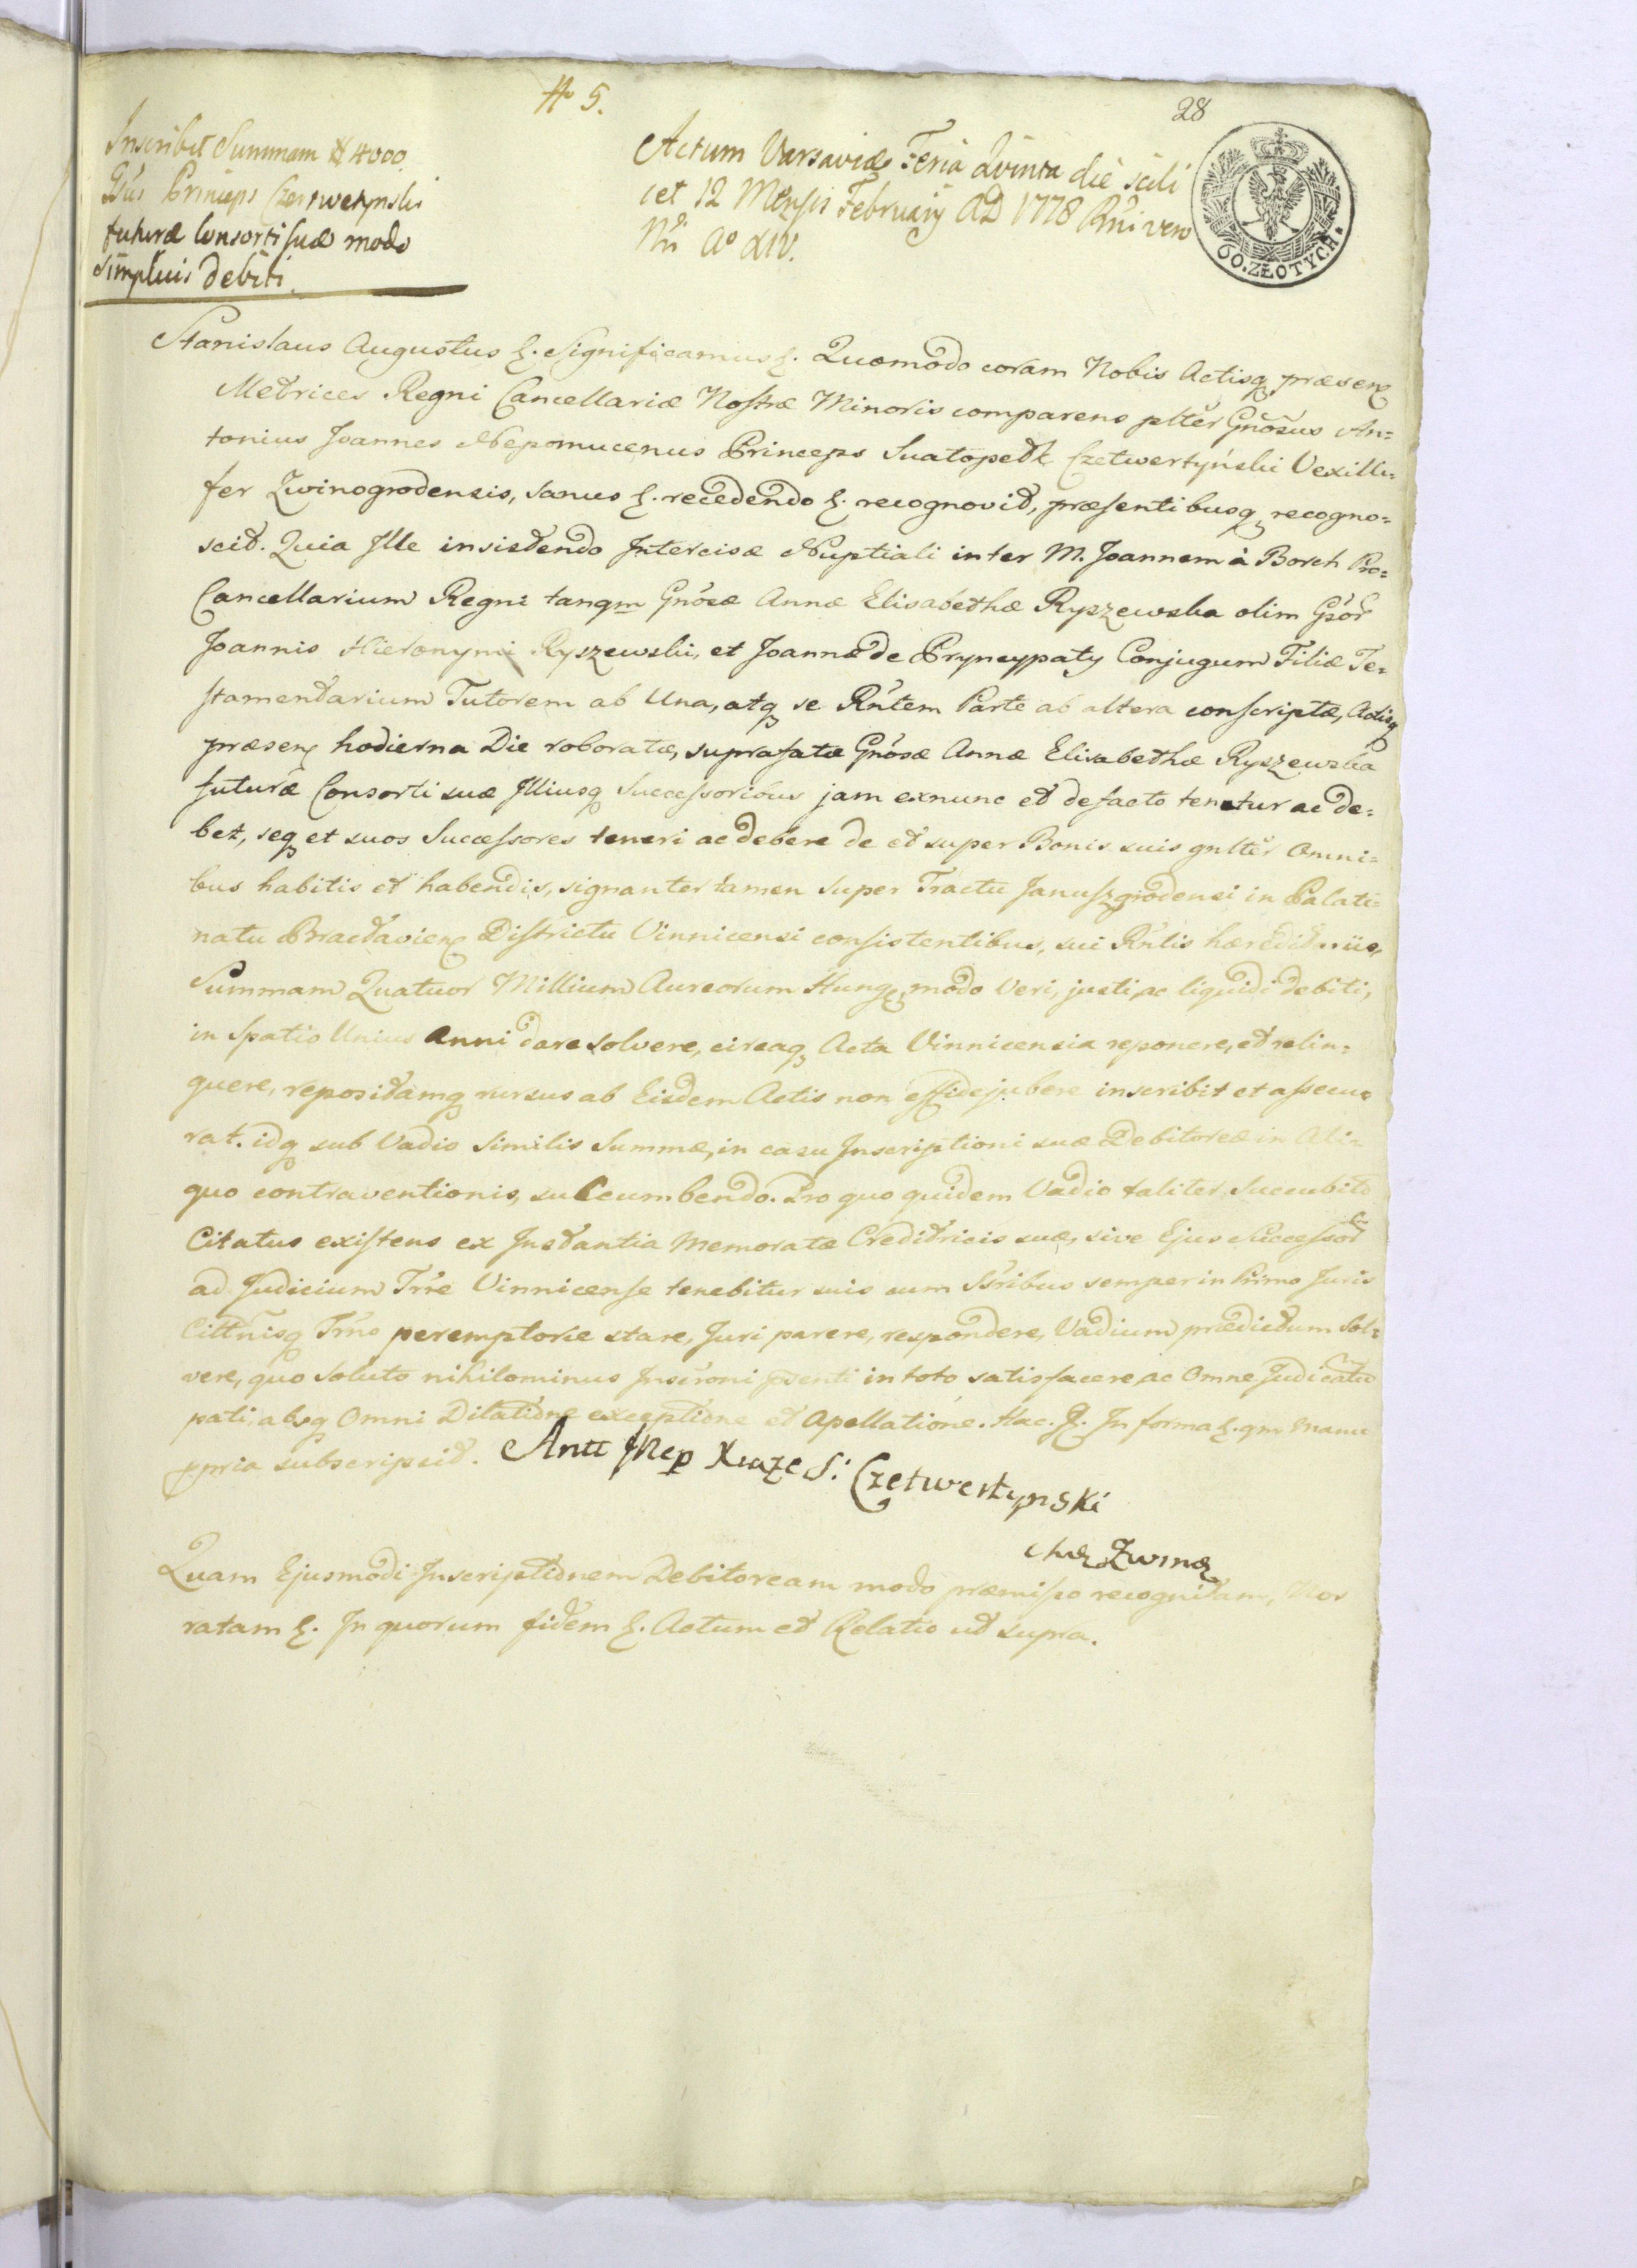 # 5.
28
Inscribit Summam # 4000
Gsus Princeps Czetwertynski
futuræ Consorti suæ modo
simplicis debiti.
Actum Varsaviæ Feria Quinta die scili
cet 12 Mensis February AD 1778 Rni vero
Nri Ao XIV.
60. ZŁOTYCH.
Stanislaus Augustus &. Significamus &. Quomodo coram Nobis Actisq præsen
Metrices Regni Cancellariæ Nostræ Minoris comparens plter Gnosus An=
tonius Joannes Nepomucenus Princeps Suatopelk Czetwertyński Vexilli=
fer Zwinogrodensis, sanus &. recedendo &. recognovit, præsentibusq recogno=
scit. Quia Ille insistendo Intercisæ Nuptiali inter M. Joannem à Borch Pro=
Cancellarium Regni tanqm Gnosæ Annæ Elisabethæ Ryszewska olim Gsor
Joannis Hieronymi Ryszewski, et Joannæ de Pryncypaty Conjugum Filiæ Te=
stamentarium Tutorem ab Una, atq se Rntem Parte ab altera conscriptæ, Actisq
præsen hodierna Die roboratæ, suprafatæ Gnosæ Annæ Elisabethæ Ryszewska
futuræ Consorti suæ Illiusq Successoribus jam exnunc et defacto tenetur ac de=
bet, seq et suos Successores teneri ac debere de et super Bonis suis gnlter Omni=
bus habitis et habendis, signanter tamen super Tractu Januszgrodensi in Palati=
natu Bractavien Districtu Vinnicensi consistentibus, sui Rntis hæreditariis,
Summam Quatuor Millium Aureorum Hung, modo Veri, justi, ac liquidi debiti,
in Spatio Unius Anni dare solvere, circaq Acta Vinnicensia reponere, et relin=
quere, repositamq rursus ab Eisdem Actis non effidejubere inscribit et assecu=
rat. idq sub Vadio Similis Summæ, in casu Inscriptioni suæ Debitoreæ in Ali=
quo contraventionis, succumbendo. Pro quo quidem Vadio taliter Succubito
Citatus existens ex Instantia Memoratæ Creditricis suæ, sive Ejus Successor
ad Judicium Trre Vinnicense tenebitur suis cum Ssribus semper in Primo Juris
Cittnisq Trno peremptorie stare, Juri parere, respondere, Vadium prædictum Sol=
vere, quo soluto nihilominus Inscroni psenti in toto satisfacere, ac Omne Judicatum
pati, absq Omni Dilatione exceptione et Apellatione. Hac. &. In forma &. qm Manu
ppria subscripsit. Ant JNep Xiąże S: Czetwertynski
Chor Zwino
Quam Ejusmodi Inscriptionem Debitoream modo præmisso recognitam, Nos
ratam &. In quorum fidem &. Actum et Relatio ut supra.